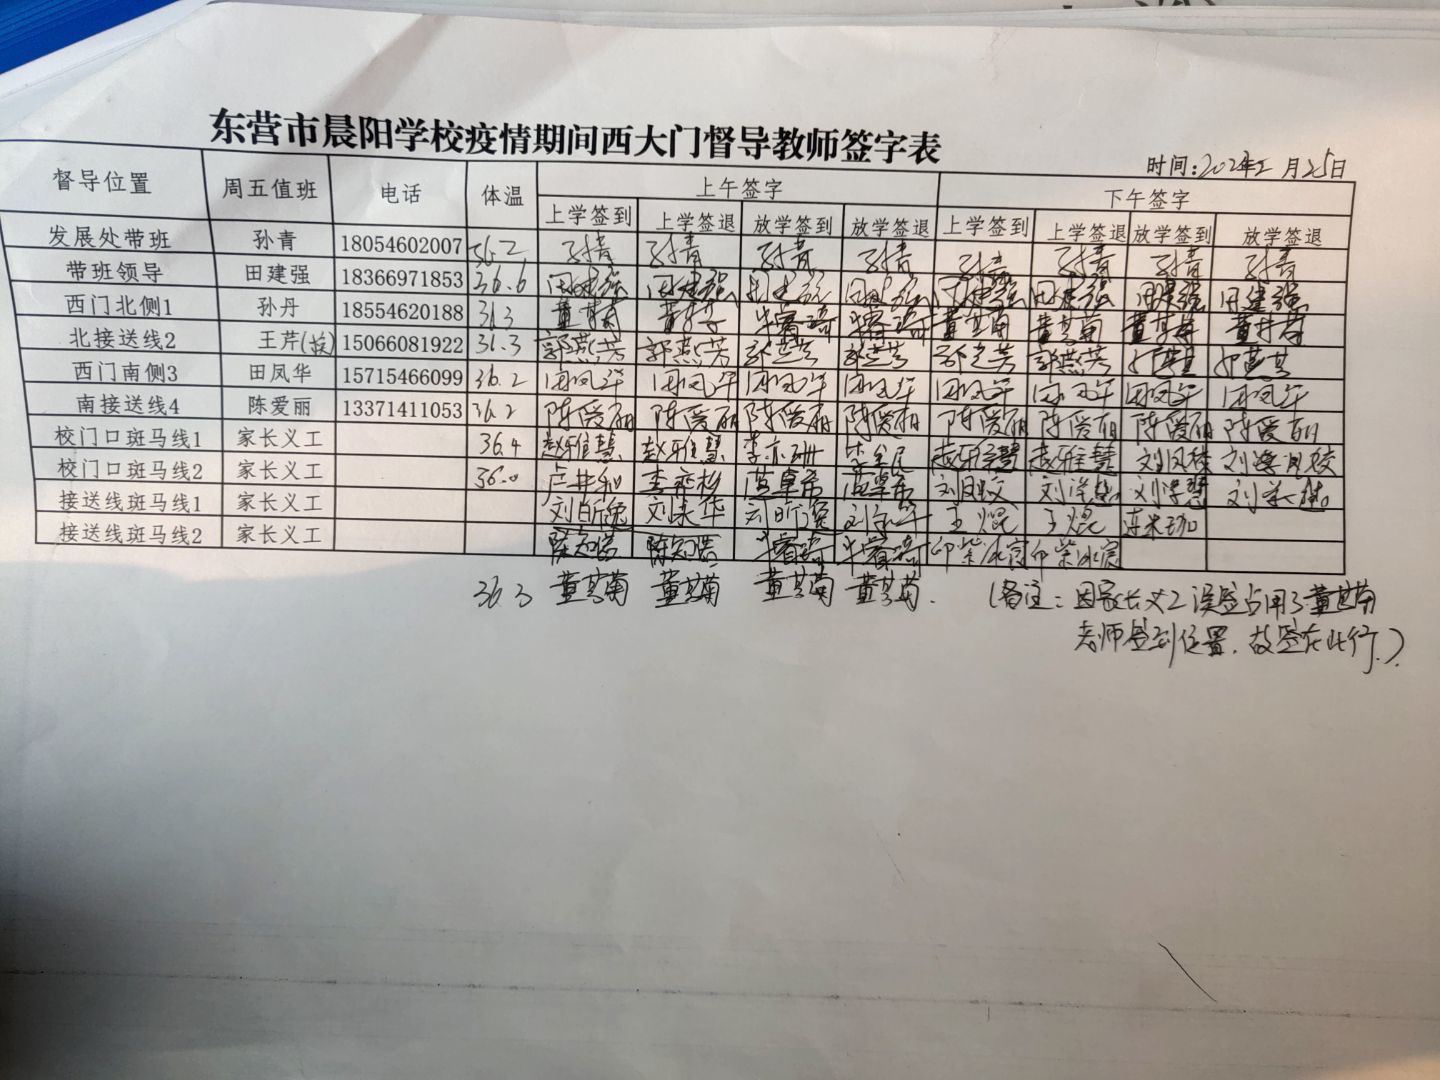 东营市晨阳学校疫情期间西大门督导教师签字表
时间: 月25日
督导位置 周五值班 电话 体温 上午签字 下午签字
上学签到 上学签退 放学签到 放学签退 上学签到 上学签退 放学签到 放学签退
发展处带班 孙青 18054602007 36.2 孙青 孙青 孙青 孙青 孙青 孙青 孙青 孙青
带班领导 田建强 18366971853 36.6 田建强 田建强 田建强 田建强 田建强 田建强 田建强 田建强
西门北侧1 孙丹 18554620188 36.3 董其菊 董其菊 董其菊 董其菊 董其菊
北接送线2 王芹 15066081922 36.3 郭燕芳 郭燕芳 郭燕芳 郭燕芳 郭燕芳 郭燕芳
西门南侧3 田凤华 15715466099 36.2 田凤华 田凤华 田凤华 田凤华 田凤华 田凤华 田凤华 田凤华
南接送线4 陈爱丽 13371411053 36.2 陈爱丽 陈爱丽 陈爱丽 陈爱丽 陈爱丽 陈爱丽 陈爱丽 陈爱丽
校门口斑马线1 家长义工 36.4 赵雅慧 赵雅慧 赵雅慧 赵雅慧
校门口斑马线2 家长义工 36.0
接送线斑马线1 家长义工 王焜 王焜
接送线斑马线2 家长义工 陈知浩 陈知浩 牛睿琦 牛睿琦
36.3 董其菊 董其菊 董其菊 董其菊. (备注:因家长义工误签占用了董其菊
老师签到位置,故签在此行.)